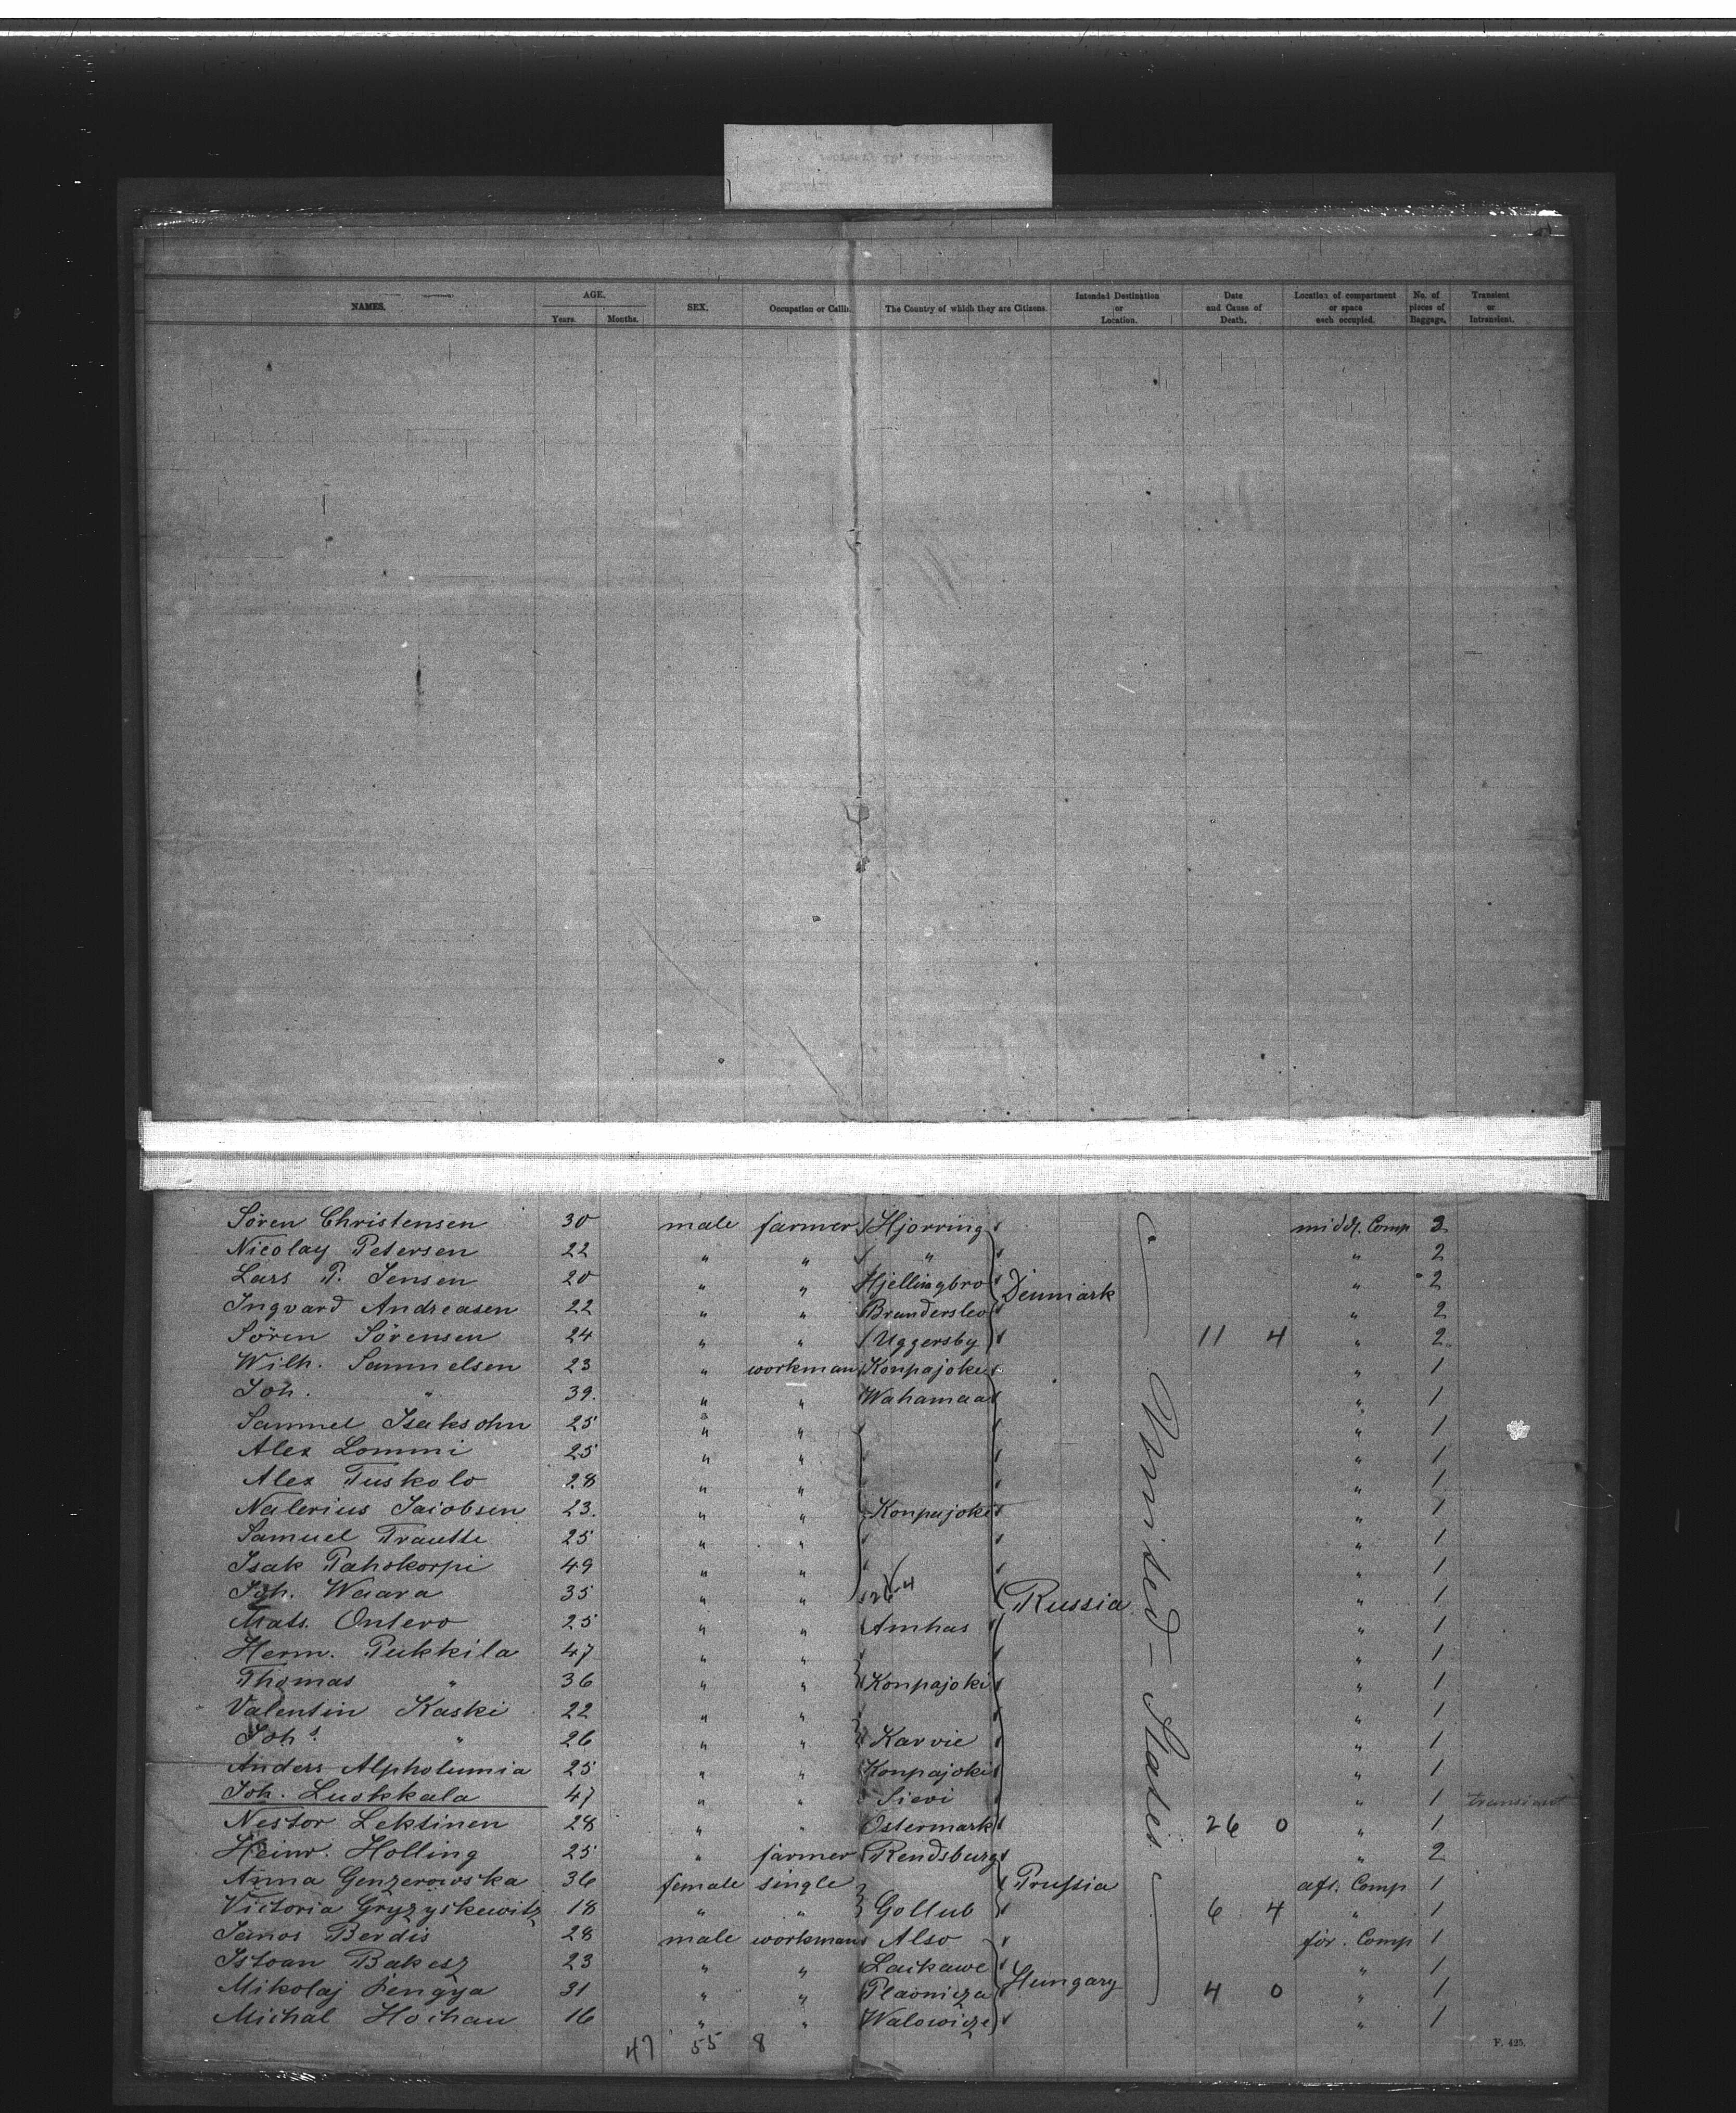 NAMES. AGE. SEX. Occupation or Callin. The Country of which they are Citizens. Intended Destination or Location. Date and Cause of Death. Location of compartment or space each occupied. No. of pieces of Baggage. Transient or Intransient.
Years. Months.
Sören Christensen 30 male farmer Hjorring middl. Comp 3
Nicolay Petersen 22 " " " " 2
Lars P. Jensen 20 " " Hjellingbro Denmark " 2
Ingvard Andreasen 22 " " Branderslev " 2
Sören Sörensen 24 " " Uggersby 11 4 " 2
Wilh. Samuelsen 23 " workman Konpajoki " 1
Joh. " 39. " " Wahamaa " 1
Samuel Isaksohn 25 " " " 1
Alex Lommi 25 " " " 1
Alex Tuskolo 28 " " " 1
Nalerius Jacobsen 23. " " Konpajoki " 1
Samuel Trautte 25 " " " 1
Isak Pahskorpi 49 " " " 1
Joh. Waara 35 " " Russia " 1
Mats. Ontero 25 " " Amhas " 1
Herm. Pukkila 47 " " " 1
Thomas " 36 " " Konpajoki " 1
Valentin Kaski 22 " " " 1
Johs. " 26 " " Karvie " 1
Anders Alpholumia 25 " " Konpajoki " 1
Joh. Luokkala 47 " " Sievi " 1 transient
Nestor Lektinen 28 " " Ostermark 26 0 " 1
Heinr. Holling 25 " farmer Rendsburg " 2
Anna Genzerowska 36 female single Prussia aft. Comp 1
Victoria Gryzyskewitz 18 " " Gollub 6 4 " 1
Janos Berdis 28 male workman Also for. Comp 1
Istvan Bakesz 23 " " Laikawe " 1
Mikolaj Fengya 31 " " Plavnicza Hungary 4 0 " 1
Michal Hochan 16 " " Walowicze " 1
United States
47 55 8
F. 425.